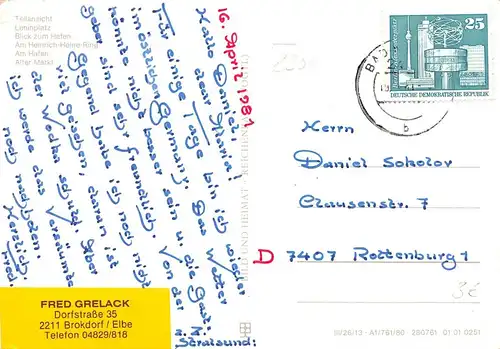 Teilansicht
Leninplatz
Blick zum Hafen
Am Heinrich-Heine-Ring
Am Hafen
Alter Markt
16. April 1981
Hallo Daniel,
Für einige Tage bin ich wieder
im östlichen Germany. Das Wetter
könnte nicht besser sein u. die Gast-
sind sehr freundlich. Von der
Gegend habe ich noch nicht
viel gesehen, daran ist
der Wodka schuld. Aber
ich werde das Versäumte
noch nachholen.
Herzlich
Fred.
z. Z. Stralsund
FRED GRELACK
Dorfstraße 35
2211 Brokdorf / Elbe
Telefon 04829/818
BILD UND HEIMAT
25
DEUTSCHE DEMOKRATISCHE REPUBLIK
BAD
b
Herrn
Daniel Sokolov
Clausenstr. 7
D 7407 Rottenburg 1
3€
III/26/13 - A1/761/80 - 280761 01 01 0251